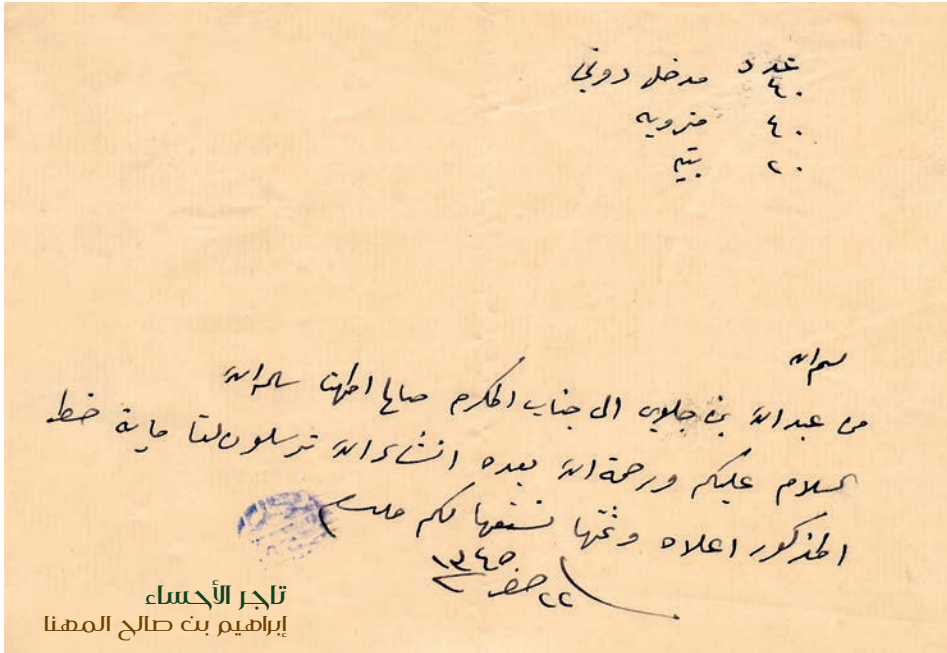 عدد
٤٠ مدخل دوني
٤٠ مزويه
٢٠ بتيه
بسم الله
من عبدالله بن جلوي الى جناب المكرم صالح المهنا سلمه الله
السلام عليكم ورحمة الله بعده انشاء الله ترسلون لنا ماية خط
المذكور اعلاه وثمنها نسنعها لكم
٢٢ صفر ١٣٤٥
تاجر الأحساء
إبراهيم بن صالح المهنا